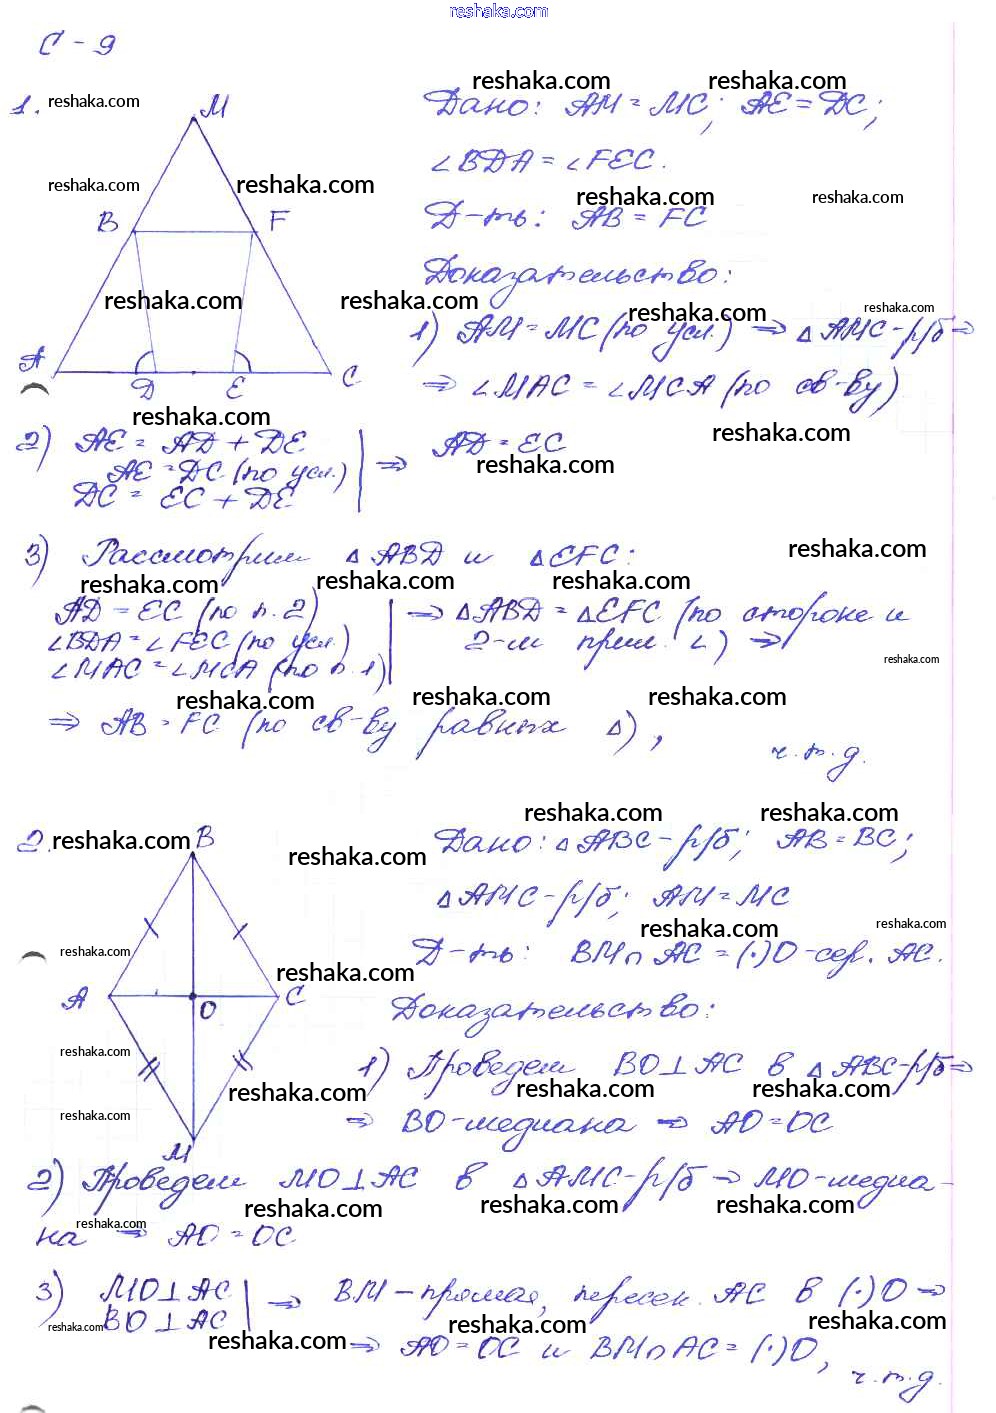 reshaka.com
С-9
1.
M
B
F
A
D
E
C
Дано: AM = MC; AE = DC;
∠BDA = ∠FEC.
Д-ть: AB = FC
Доказательство:
1) AM = MC (по усл.) ⇒ △AMC-р/б ⇒
⇒ ∠MAC = ∠MCA (по св-ву)
2) AE = AD + DE
AE = DC (по усл.)
DC = EC + DE
⇒ AD = EC
3) Рассмотрим △ABD и △EFC:
AD = EC (по п. 2)
∠BDA = ∠FEC (по усл.)
∠MAC = ∠MCA (по п. 1)
⇒ △ABD = △EFC (по стороне и
2-м прил. ∠) ⇒
⇒ AB = FC (по св-ву равных △),
ч.т.д.
2.
B
A
O
C
M
Дано: △ABC-р/б; AB = BC;
△AMC-р/б; AM = MC
Д-ть: BM ∩ AC = (·)O-сер. AC.
Доказательство:
1) Проведем BO ⊥ AC в △ABC-р/б ⇒
⇒ BO-медиана ⇒ AO = OC
2) Проведем MO ⊥ AC в △AMC-р/б ⇒ MO-медиа-
на ⇒ AO = OC
3) MO ⊥ AC
BO ⊥ AC
⇒ BM – прямая, пересек. AC в (·)O ⇒
⇒ AO = OC и BM ∩ AC = (·)O,
ч.т.д.